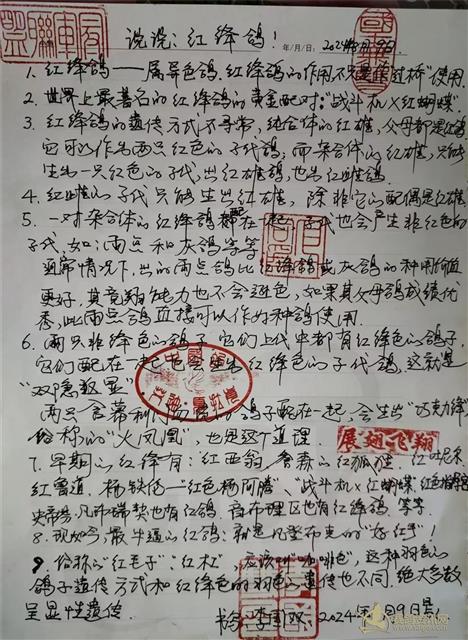 说说:红绛鸽!
年/月/日:2024年 月9日.
1. 红绛鸽——属异色鸽.红绛鸽的作用不只是作"过桥"使用.
2. 世界上最著名的红绛鸽的黄金配对:"战斗机X红蝴蝶".
3. 红绛鸽的遗传方式不寻常,纯合体的红雄,父母都是红鸽
它可以作为两只红色的子代鸽;而杂合体的红雄,只能
生为一只红色的子代,出红雄鸽,也出红雌鸽
4. 红雌的子代只能生出红雄,除非它的配偶是红雄.
5. 一对杂合体的红绛鸽都配在一起,子代也会产生非红色的
子代,如:雨点和灰鸽等等
通常情况下,出的雨点鸽比红绛鸽或灰鸽的种用价值
更好,其竞翔能力也不会逊色,如果其父母鸽成绩优
秀,此雨点鸽直接可以作为种鸽使用.
6. 两只非绛色的鸽子,它们上代中都有红绛色的鸽子.
它们配在一起,也会生出红绛色的子代鸽,这就是
"双隐叛显
两只 鸽子配在一起,会生出"巧克力绛"
俗称的"火凤凰",也是这个道理.
展翅飞翔
7. 早期的红绛有:红西翁、詹森的红狐狸、
红曾道、杨铁伦"红色杨阿腾"、"战斗机X红蝴蝶"
等等.
8. 现如今,最牛逼的红鸽:就是凡登布克的"好红"!
9. 俗称的"红毛子"、"红木",应该叫"咖啡色",这种羽色的
鸽子遗传方式和绛色的羽色的遗传也不同.绝大多数
呈显性遗传.
2024年 月9日